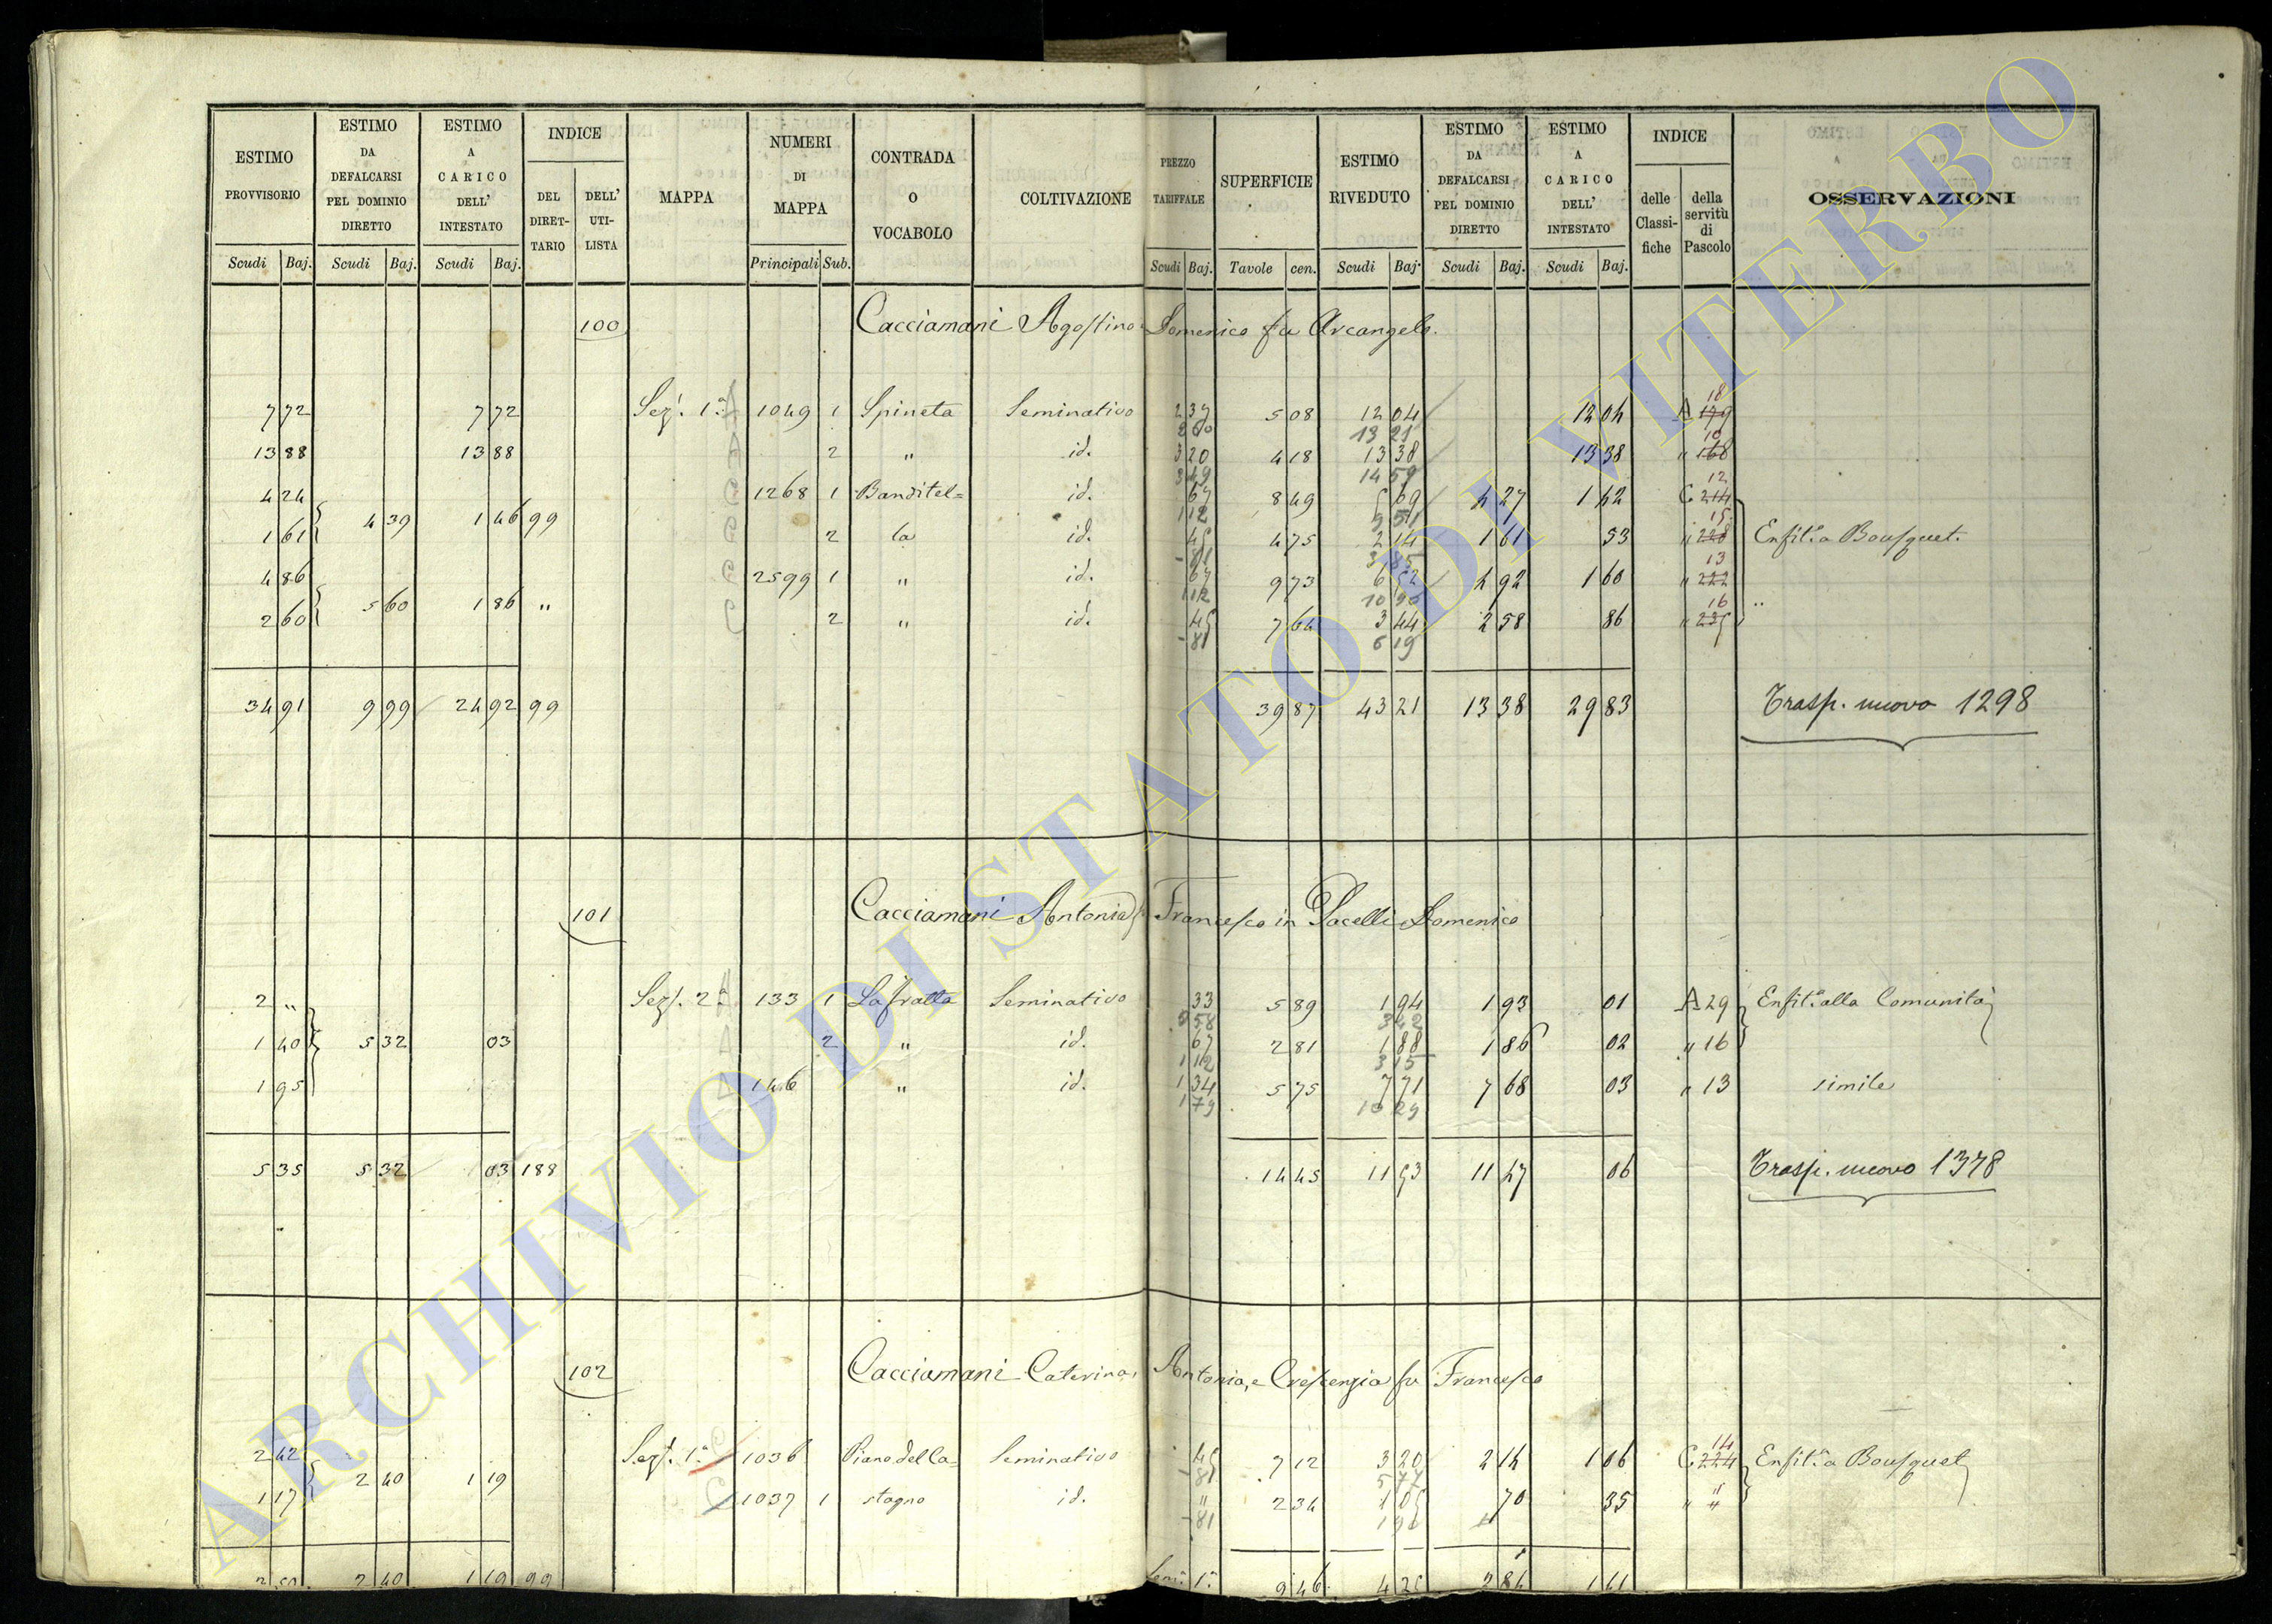 ESTIMO PROVVISORIO | ESTIMO DA DEFALCARSI PEL DOMINIO DIRETTO | ESTIMO A CARICO DELL' INTESTATO | INDICE | MAPPA | NUMERI DI MAPPA | CONTRADA O VOCABOLO | COLTIVAZIONE | PREZZO TARIFFALE | SUPERFICIE | ESTIMO RIVEDUTO | ESTIMO DA DEFALCARSI PEL DOMINIO DIRETTO | ESTIMO A CARICO DELL' INTESTATO | INDICE | OSSERVAZIONI
DEL DIRET-TARIO | DELL' UTI-LISTA | delle Classi-fiche | della servitù di Pascolo
Scudi Baj. | Scudi Baj. | Scudi Baj. | Principali Sub. | Scudi Baj. | Tavole cen. | Scudi Baj. | Scudi Baj. | Scudi Baj.
100 Cacciamani Agostino Domenico fu Arcangelo.
7 72 | 7 72 | Sez. 1ª A | 1049 1 | Spineta | Seminativo | 2 37 | 5 08 | 12 04 | 12 04 | A 179 18
2 60 | 13 21
13 88 | 13 88 | A | 2 | " | id. | 3 20 | 4 18 | 13 38 | 13 38 | " 168 10
3 49 | 14 59
4 24 | 1268 1 | Banditel= | id. | 67 | 8 49 | 5 69 | 4 27 | 1 42 | C 214 12
4 39 | 1 46 | 99 | 1 12 | 9 51
1 61 | 2 | la | id. | 45 | 4 75 | 2 14 | 1 61 | 53 | " 228 15 | Enfit.a a Bousquet.
- 81 | 3 85
4 86 | 2599 1 | " | id. | 67 | 9 73 | 6 52 | 4 92 | 1 60 | " 222 13
5 60 | 1 86 | " | 1 12 | 10 90 | "
2 60 | 2 | " | id. | 45 | 7 64 | 3 44 | 2 58 | 86 | " 235 16
- 81 | 6 19
34 91 | 9 99 | 24 92 | 99 | 39 87 | 43 21 | 13 38 | 29 83 | Trasp. nuovo 1298
101 Cacciamani Antonia Francesco in Pacelli Domenico
2 " | Sez. 2ª A | 133 1 | La fratta | Seminativo | 33 | 5 89 | 1 94 | 1 93 | 01 | A 29 | Enfit.a alla Comunità
58 | 3 42
1 40 | 5 32 | 03 | A | 2 | " | id. | 67 | 2 81 | 1 88 | 1 86 | 02 | " 16
1 12 | 3 15
1 95 | A | 146 | " | id. | 1 34 | 5 75 | 7 71 | 7 68 | 03 | " 13 | simile
1 79 | 10 29
5 35 | 5 32 | 03 | 188 | 14 45 | 11 53 | 11 47 | 06 | Trasp. nuovo 1378
102 Cacciamani Caterina, Antonia, e Crescenzia fu Francesco
2 42 | Sez. 1ª | 1036 | Piano della= | Seminativo | 45 | 7 12 | 3 20 | 2 14 | 1 06 | C 224 14 | Enfit.a a Bousquet
2 40 | 1 19 | - 81 | 5 77
1 17 | 1037 1 | stagno | id. | " | 2 34 | 1 05 | 70 | 35 | " "
- 81 | 1 90
2 40 | 1 19 | 99 | 9 46 | 4 25 | 2 84 | 1 41
ARCHIVIO DI STATO DI VITERBO